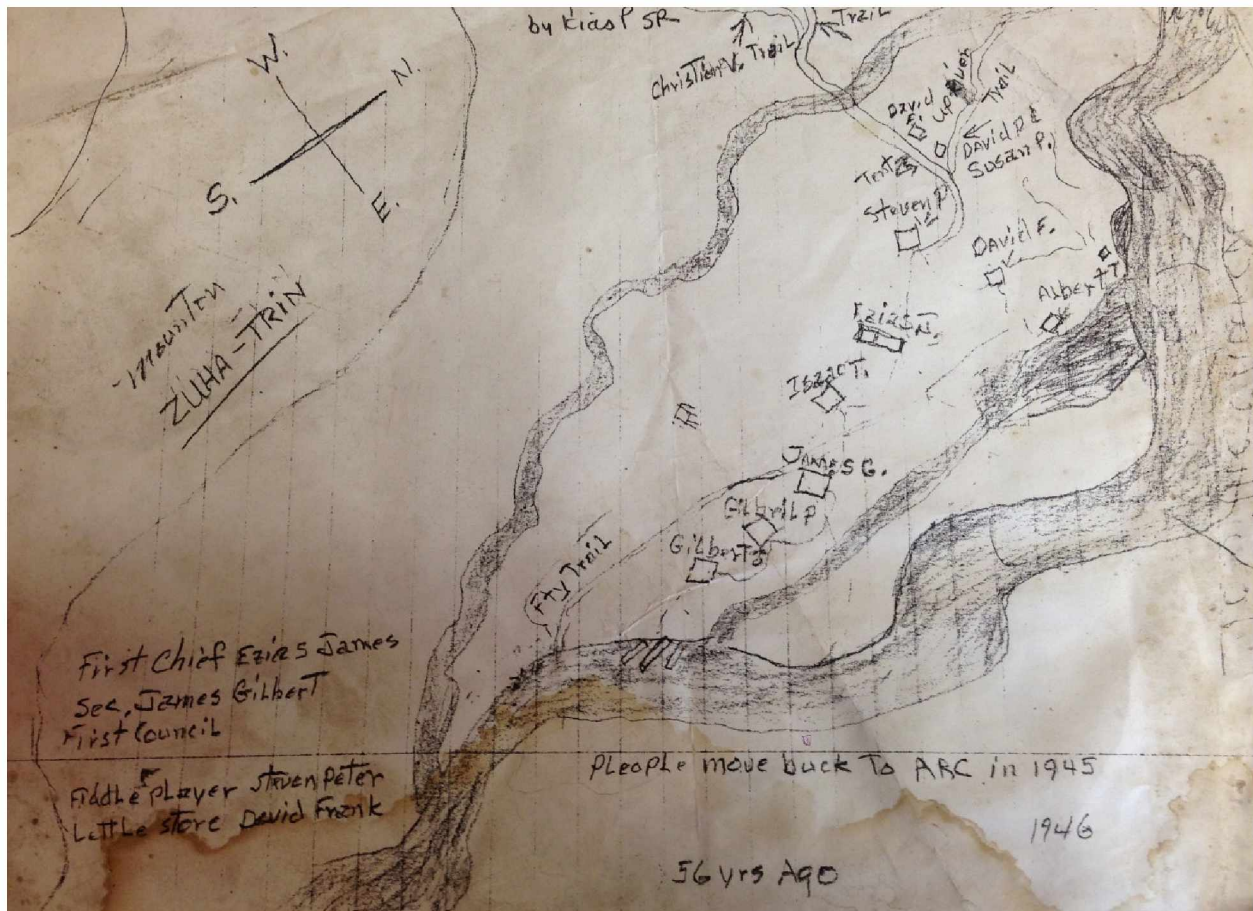 by Kias P SR
Trail
Christian V. Trail
W.
N.
S.
E.
David
F.
up river
Trail
David P &
Susan P.
Tents
Steven P
David F.
Albert T
Ezias J.
Isaac T.
mounten
ZUHA-TRIN
James G.
Gilbert P
Gilbert J
Fty Trail
First Chief Ezias James
Sec. James Gilbert
First Council
Fiddle player Steven Peter
Little store David Frank
Pleople move back To ARC in 1945
1946
56 yrs Ago